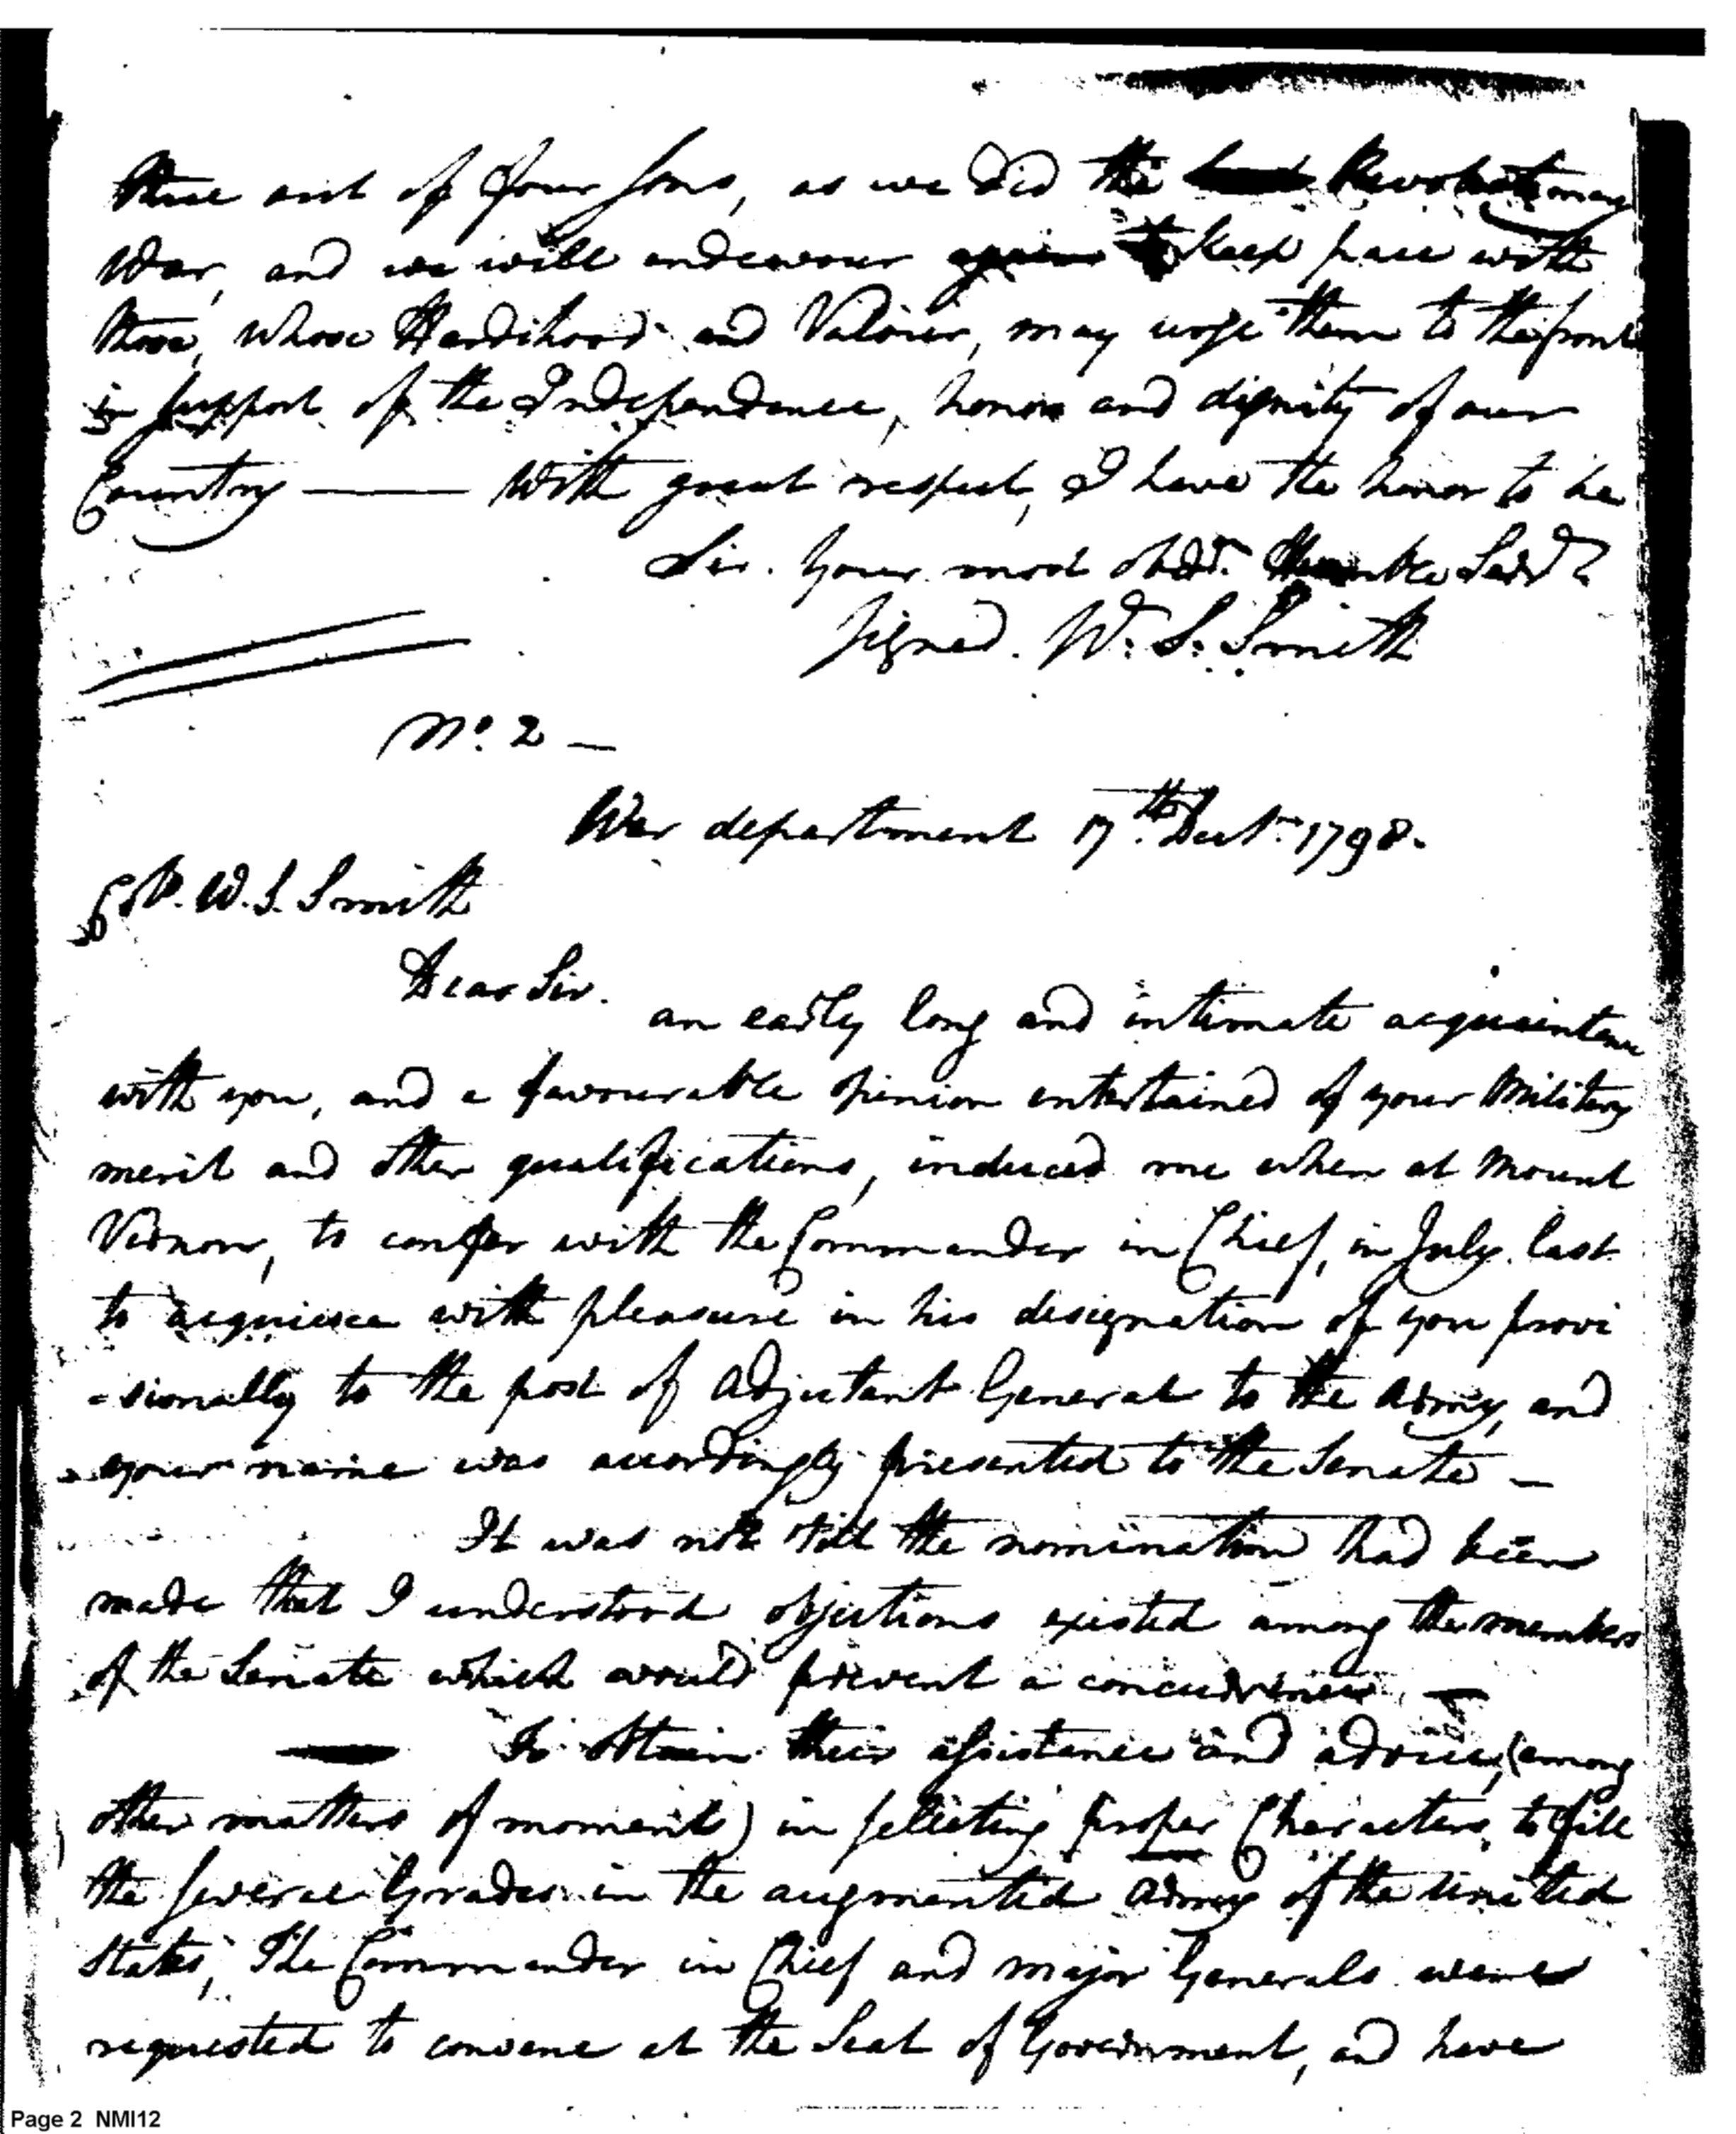 three out of four sons, as we did the Revolutionary
War, and we will endeavour again to keep pace with
those, whose Hardihood and Valour, may urge them to the front
in support of the Independence, honor and dignity of our
Country —— With great respect, I have the honor to be
Sir. Your most obdt. Humble Servt.
signed. W. S. Smith
No. 2 —
War department 17th. Decr. 1798.
Col. W. S. Smith
Dear Sir.
an early long and intimate acquaintance
with you, and a favourable opinion entertained of your Military
merit and other qualifications, induced me when at Mount
Vernon, to confer with the Commander in Chief, in July last
to acquiesce with pleasure in his designation of you provi
-sionally to the post of Adjutant General to the Army, and
your name was accordingly presented to the Senate —
It was not till the nomination had been
made that I understood objections existed among the members
of the Senate which would prevent a concurrence —
To obtain their assistance and advice, (among
other matters of moment) in selecting proper Characters, to fill
the several Grades in the augmented Army of the United
States, The Commander in Chief and major Generals were
requested to convene at the Seat of Government, and have
Page 2 NMI12